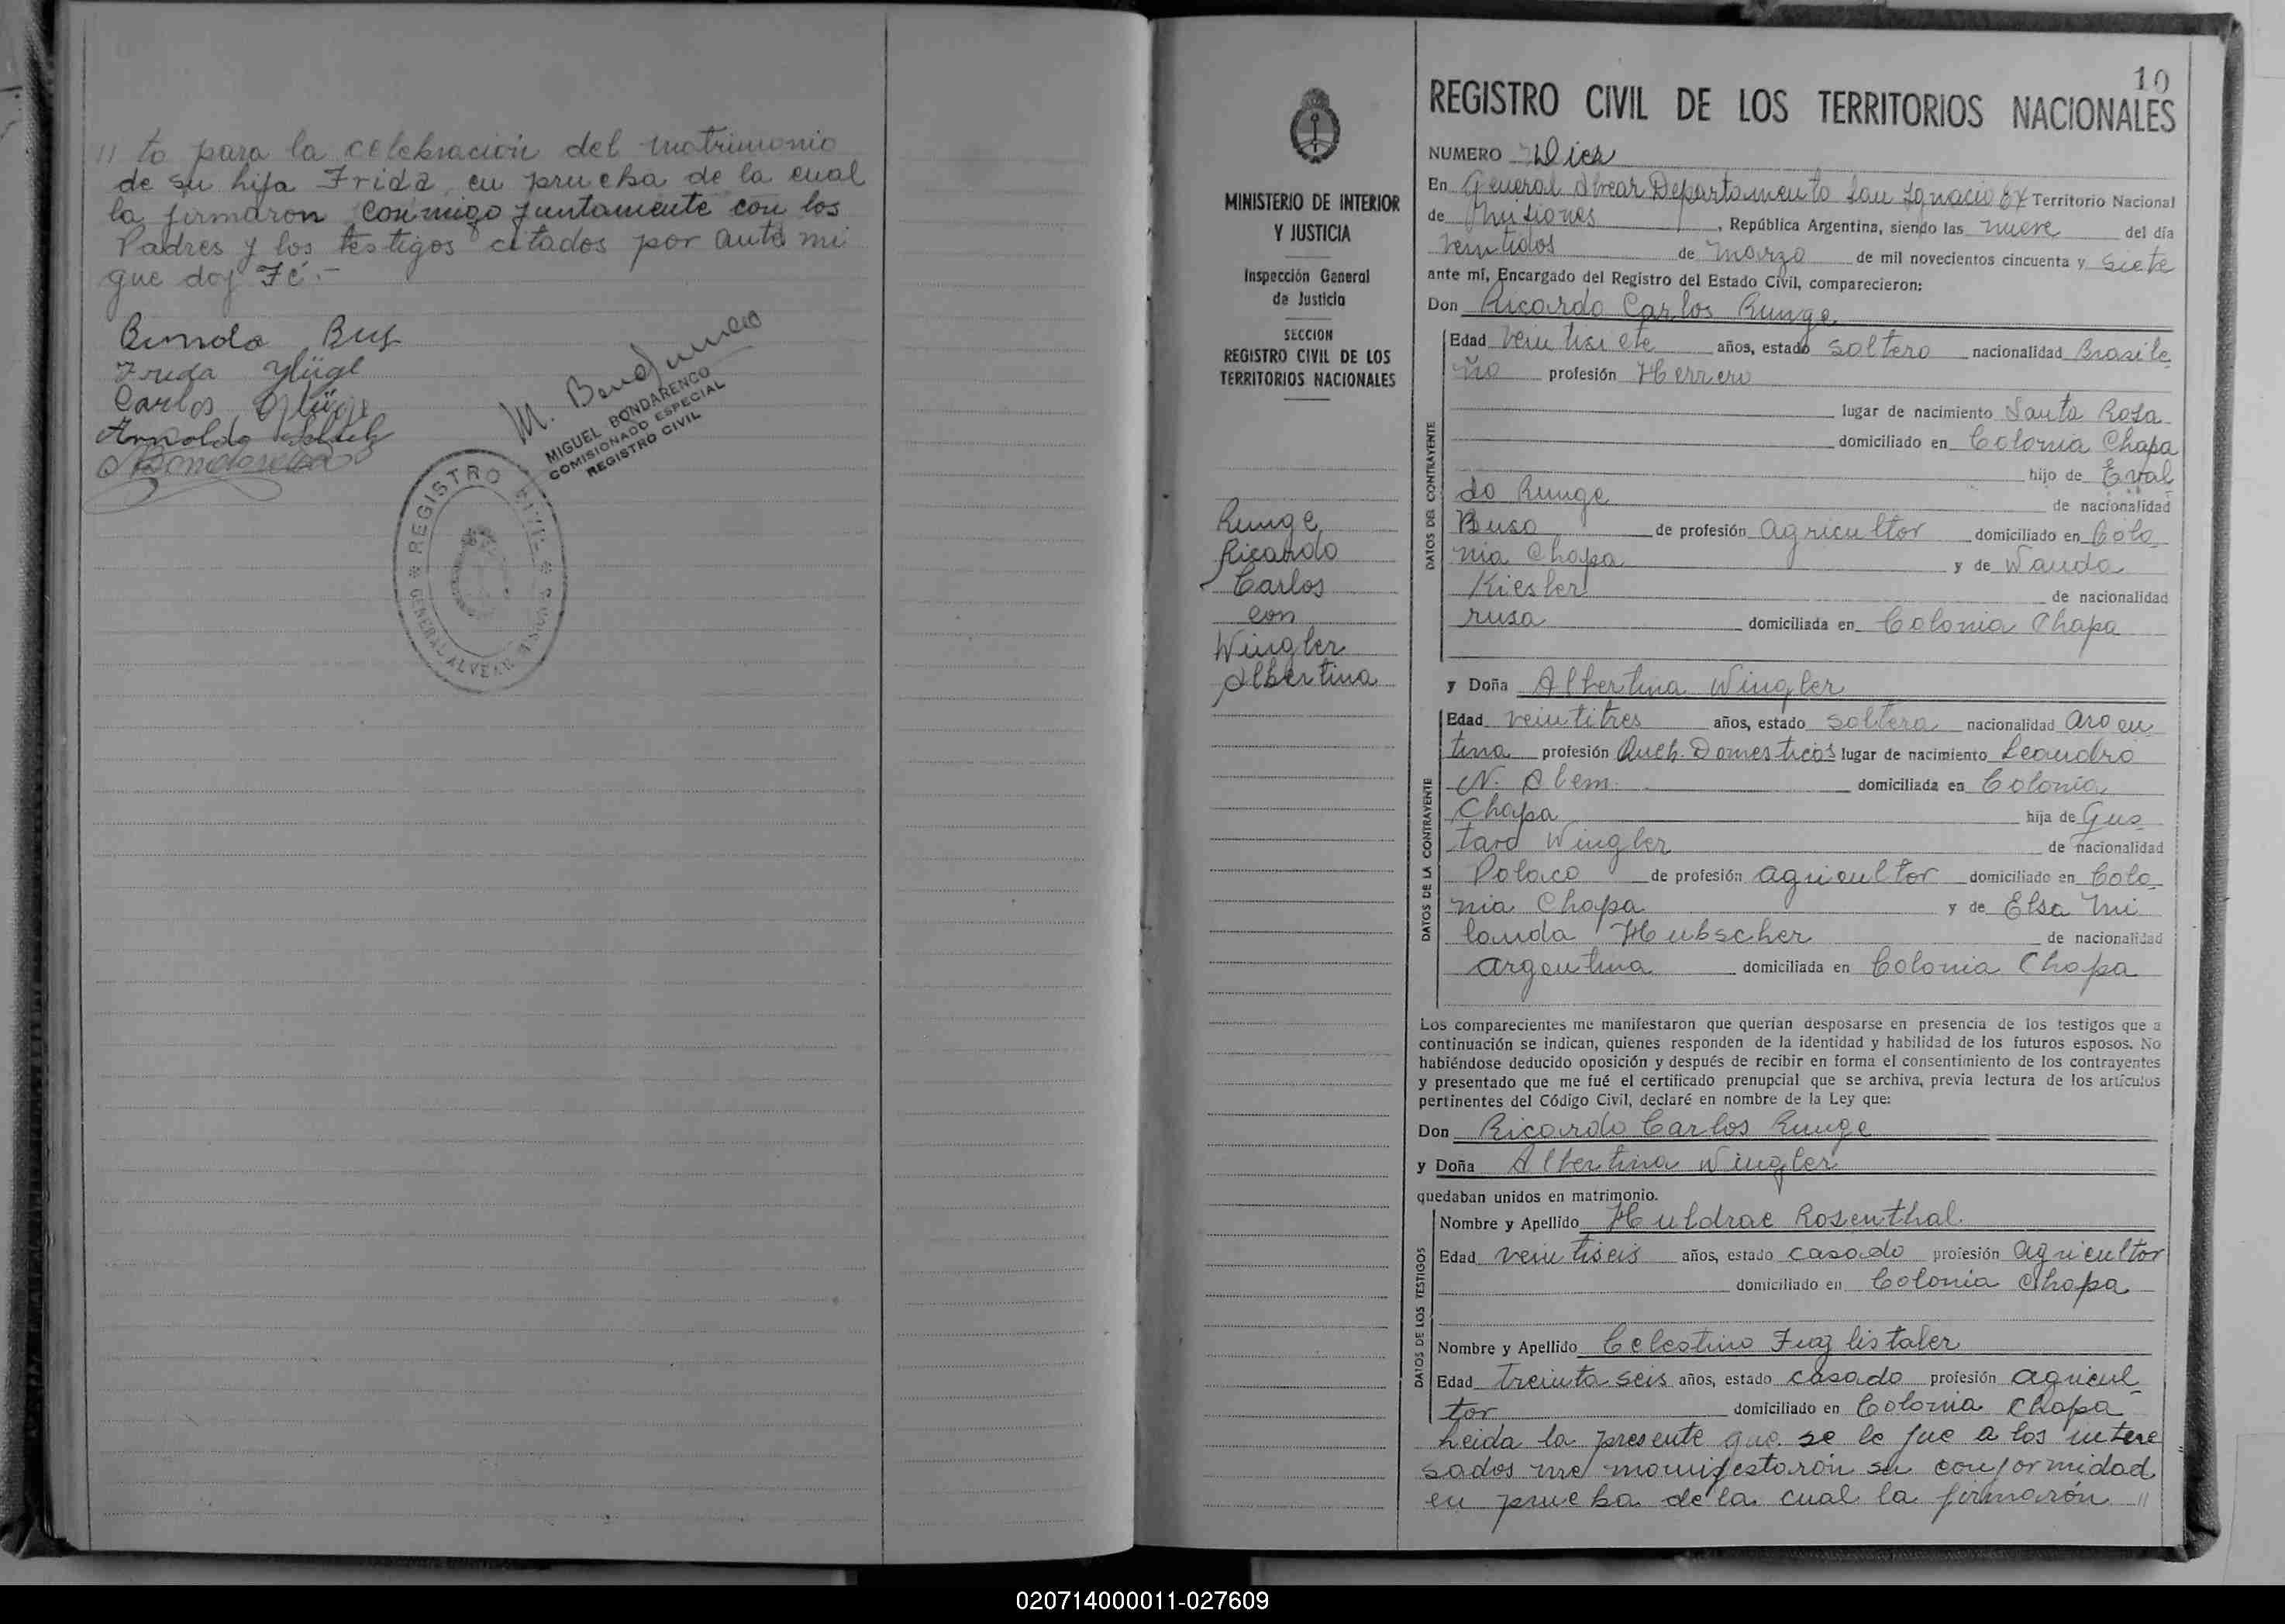 // to para la celebración del matrimonio
de su hija Frida, en prueba de la cual
la firmaron conmigo juntamente con los
Padres y los testigos citados por ante mi
que doy Fé.-
Frida
Carlos
Arnoldo
M. Bondarenco
MIGUEL BONDARENCO
COMISIONADO ESPECIAL
REGISTRO CIVIL
REGISTRO CIVIL
GENERAL ALVEAR MISIONES
10
REGISTRO CIVIL DE LOS TERRITORIOS NACIONALES
MINISTERIO DE INTERIOR
Y JUSTICIA
Inspección General
de Justicia
SECCION
REGISTRO CIVIL DE LOS
TERRITORIOS NACIONALES
Runge
Ricardo
Carlos
con
Wingler
Albertina
NUMERO Diez
En General Alvear Departamento San Ignacio Ex Territorio Nacional
de Misiones, República Argentina, siendo las nueve del día
veintidos de marzo de mil novecientos cincuenta y siete
ante mí, Encargado del Registro del Estado Civil, comparecieron:
Don Ricardo Carlos Runge
DATOS DEL CONTRAYENTE
Edad veintisiete años, estado soltero nacionalidad Brasile
ño profesión Herrero
lugar de nacimiento Santa Rosa
domiciliado en Colonia Chapa
hijo de Eval
do Runge de nacionalidad
Ruso de profesión agricultor domiciliado en Colo
nia Chapa y de Wanda
Kiesler de nacionalidad
rusa domiciliada en Colonia Chapa
y Doña Albertina Wingler
DATOS DE LA CONTRAYENTE
Edad veintitres años, estado soltera nacionalidad argen
tina profesión Queh. Domesticos lugar de nacimiento Leandro
N. Alem. domiciliada en Colonia
Chapa hija de Gus
tavo Wingler de nacionalidad
Polaco de profesión agricultor domiciliado en Colo
nia Chapa y de Elsa Mi
landa Hubscher de nacionalidad
argentina domiciliada en Colonia Chapa
Los comparecientes me manifestaron que querían desposarse en presencia de los testigos que a
continuación se indican, quienes responden de la identidad y habilidad de los futuros esposos. No
habiéndose deducido oposición y después de recibir en forma el consentimiento de los contrayentes
y presentado que me fué el certificado prenupcial que se archiva, previa lectura de los artículos
pertinentes del Código Civil, declaré en nombre de la Ley que:
Don Ricardo Carlos Runge
y Doña Albertina Wingler
quedaban unidos en matrimonio.
DATOS DE LOS TESTIGOS
Nombre y Apellido Huldrae Rosenthal
Edad veintiseis años, estado casado profesión agricultor
domiciliado en Colonia Chapa
Nombre y Apellido Celestino
Edad treinta seis años, estado casado profesión agricul
tor domiciliado en Colonia Chapa
heida la presente que se le fue a los intere
sados me manifestaron su conformidad
en prueba de la cual la firmarón //
020714000011-027609